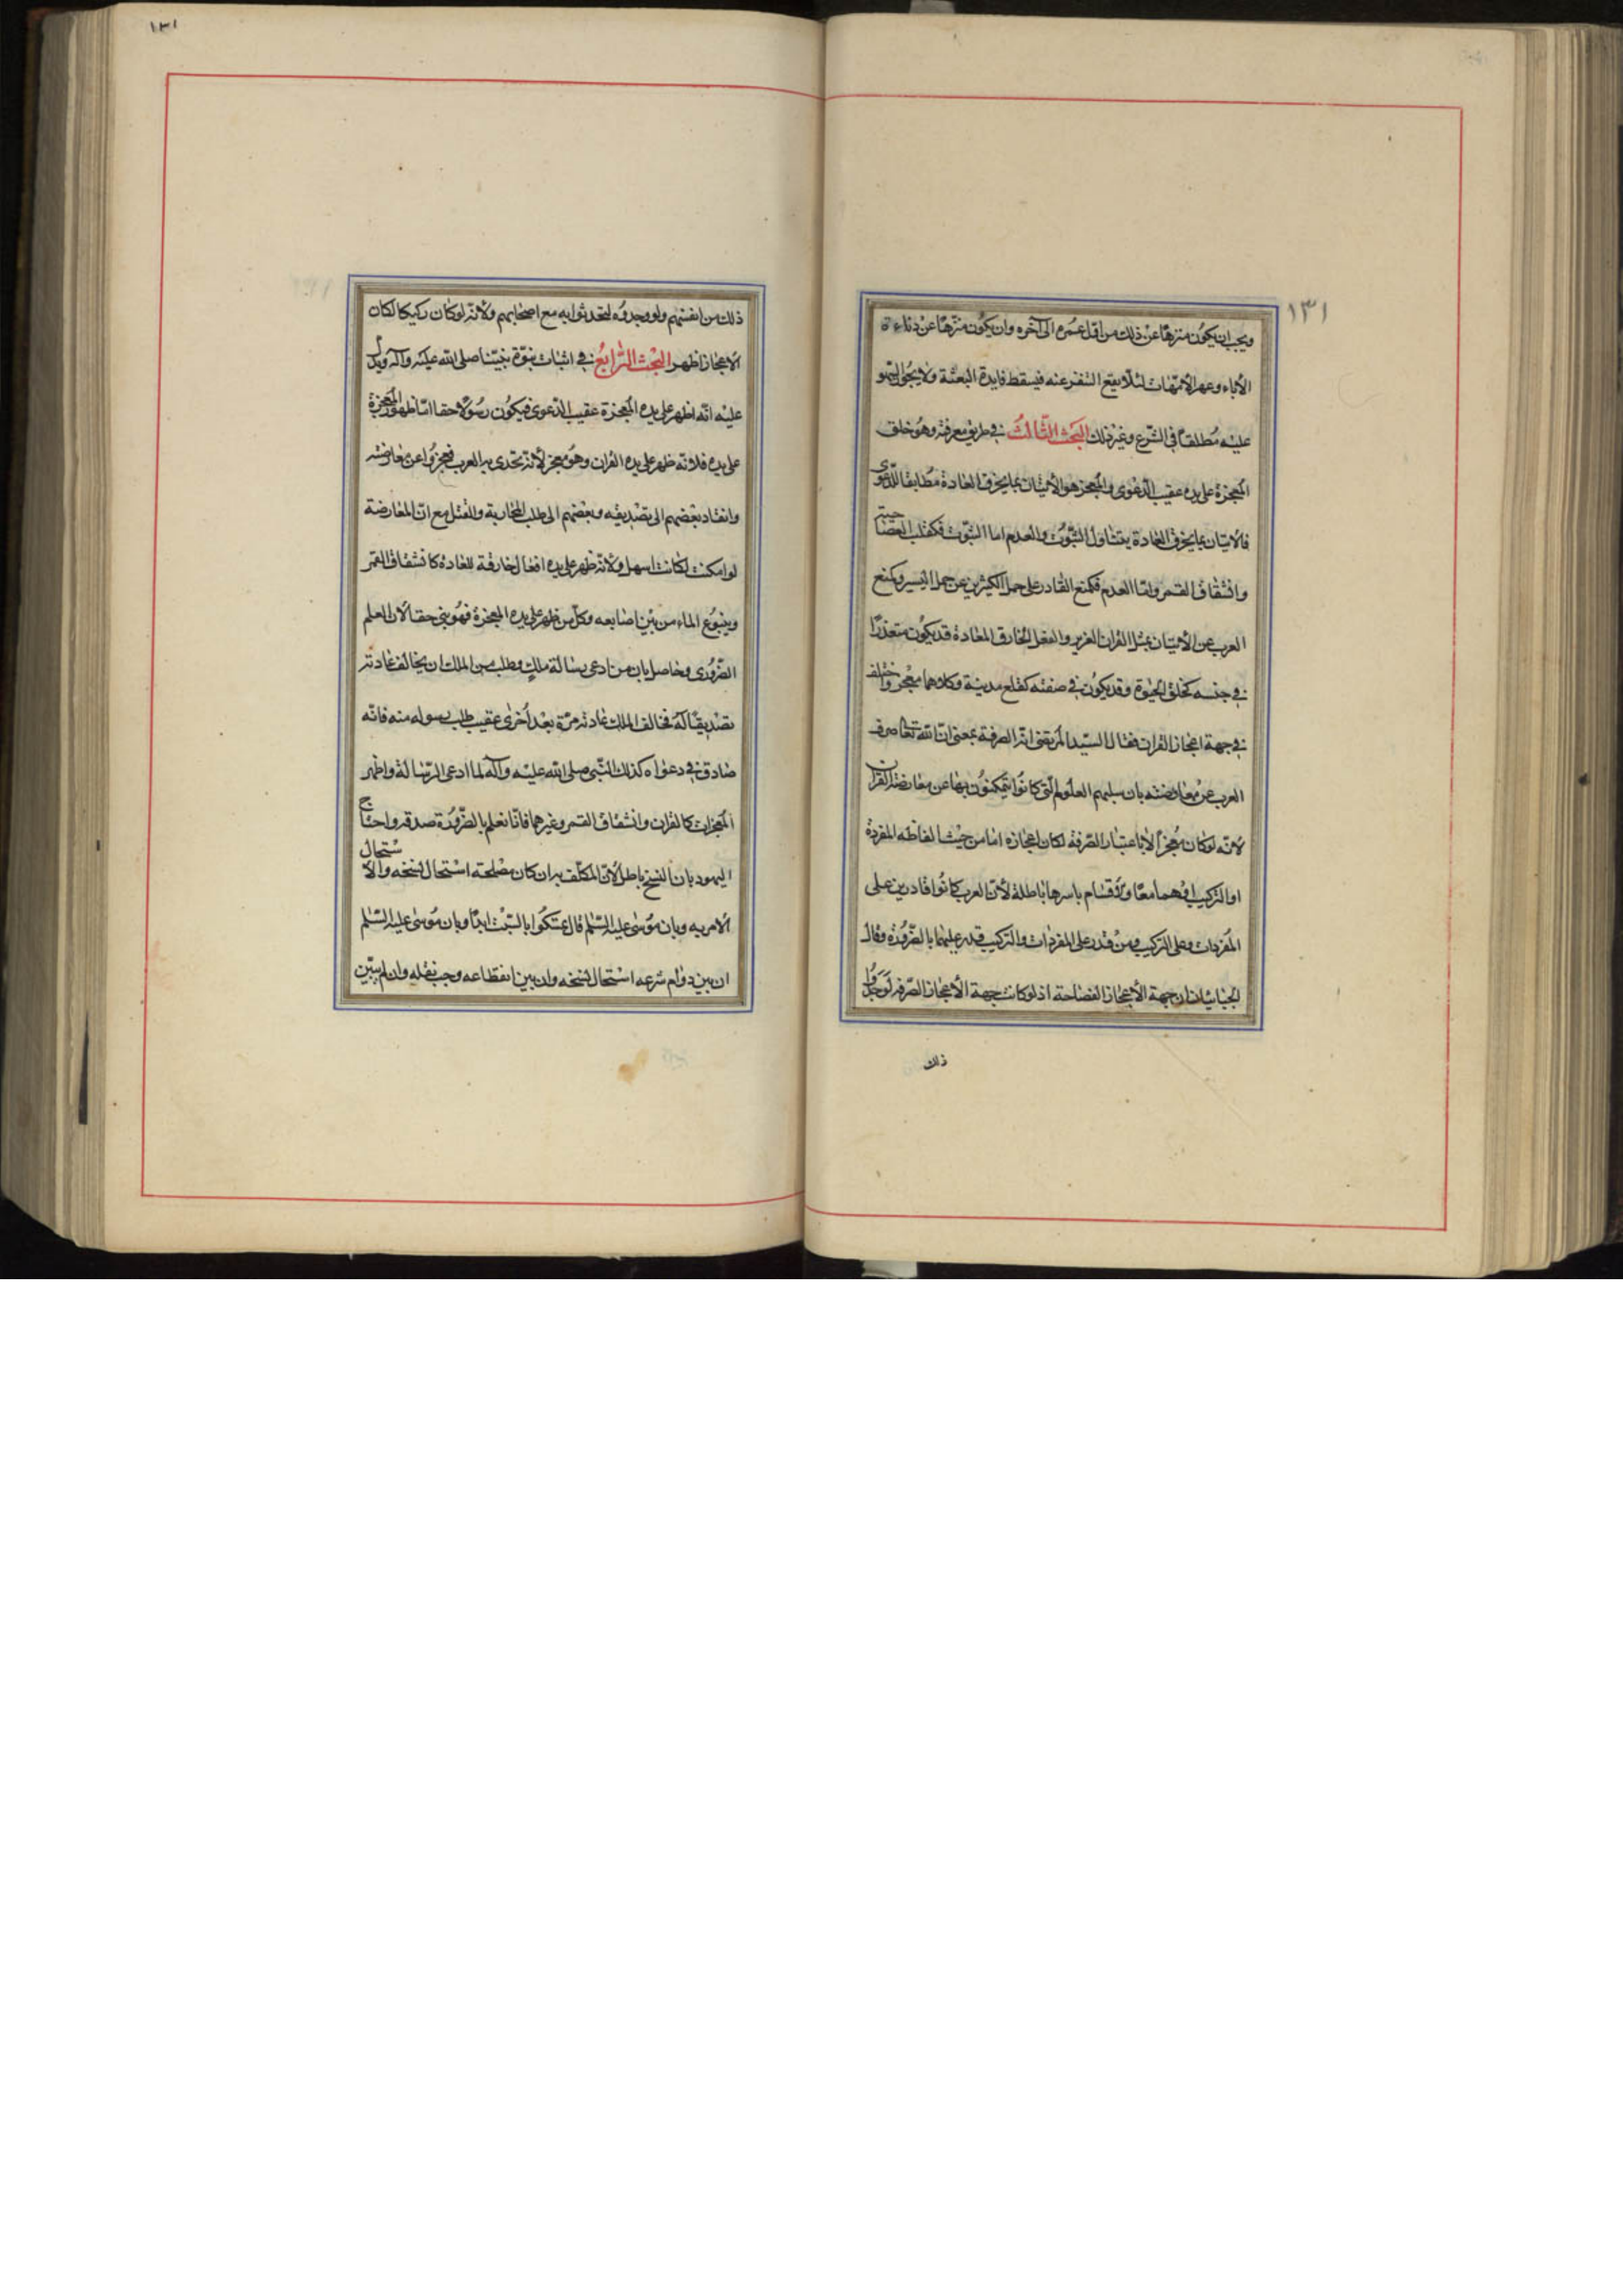 ١٣١
ويجب ان يكون منزها عن ذلك من اول عمره الى آخره وان يكون منزها عن دناءة
الأباء وعهر الأمهات لئلا يقع التنفر عنه فيسقط فايدة البعثة ولا يجوز السهو
عليه مطلقا في الشرع وغير ذلك البحث الثالث في طريق معرفته وهو خلق
المعجزة على يده عقيب الدعوى والمعجز هو الأتيان بما يخرق العادة مطابقا للدعوى
فالأتيان بما يخرق العادة يتناول الثبوت والعدم اما الثبوت فكقلب العصا حية
وانشقاق القمر واما العدم فكمنع القادر على حمل الكثير عن حمل اليسير وكمنع
العرب عن الأتيان بمثل القران العزيز والفعل الخارق للعادة قد يكون متعذرا
في جنسه كخلق الحيوة وقد يكون في صفته كقلع مدينة وكلاهما معجز واختلف
في جهة اعجاز القران فقال السيد المرتضى انه الصرفة بمعنى ان الله تعالى صرف
العرب عن معارضته بان سلبهم العلوم التي كانوا يتمكنون بها عن معارضة القران
لأنه لو كان معجزا لا باعتبار الصرفة لكان اعجازه اما من حيث الفاظه المفردة
او التركيب او هما معا والأقسام باسرها باطلة لأن العرب كانوا قادرين على
المفردات وعلى التركيب ومن قدر على المفردات والتركيب قدر عليهما بالضرورة وقال
الجبائيان ان جهة الأعجاز الفصاحة اذ لو كانت جهة الأعجاز الصرفة لوجدوا
ذلك
١٣١
ذلك من انفسهم ولو وجدوه لتحدثوا به مع اصحابهم ولأنه لو كان ركيكا لكان
الاعجاز اظهر البحث الرابع في اثبات نبوة نبينا صلى الله عليه وآله ويدل
عليه انه اظهر على يده المعجزة عقيب الدعوى فيكون رسولا حقا اما ظهور المعجزة
على يده فلانه ظهر على يده القران وهو معجز لأنه تحدى به العرب فعجزوا عن معارضته
وانقاد بعضهم الى تصديقه وبعضهم الى طلب المحاربة والقتل مع ان المعارضة
لو امكنت لكانت اسهل ولأنه ظهر على يده افعال خارقة للعادة كانشقاق القمر
وينبوع الماء من بين اصابعه وكل من ظهر على يده المعجزة فهو نبي حقا لان العلم
الضروري حاصل بان من ادعى رسالة ملك وطلب من الملك ان يخالف عادته
تصديقا له فخالف الملك عادته مرة بعد أخرى عقيب طلب رسوله منه فانه
صادق في دعواه كذلك النبي صلى الله عليه وآله لما ادعى الرسالة واظهر
المعجزات كالقران وانشقاق القمر وغيرهما فانا نعلم بالضرورة صدقه واحتاج
اليهود بان النسخ باطل لأن المكلف به ان كان مصلحته استحال نسخه والا استحال
الامر به وبان موسى عليه السلم قال تمسكوا بالسبت ابدا وبان موسى عليه السلم
ان بين دوام شرعه استحال نسخه وان بين انقطاعه وجب نقله وان لم يبين